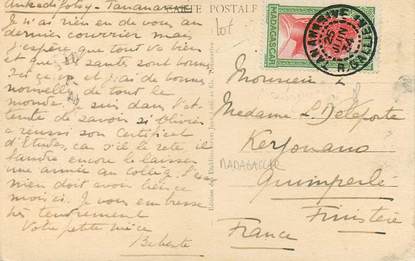 Ankadifotsy - Tananarive
Je n'ai rien eu de vous au
dernier courrier mais
j'espère que tout va bien
et que santés sont bonnes.
Ici ça va et j'ai de bonnes
nouvelles de tout le
monde. Je suis dans l'at-
tente de savoir si Olivier
a réussi son Certificat
d'Etudes, car s'il le rate il
faudra encore le laisser
une année au collège.
mien doit avoir bien ce
mois ci. Je vous embrasse
très tendrement
Votre petite nièce
Beberte
CARTE POSTALE
lot
MADAGASCAR
TANANARIVE
R. GALLIENI
JUIN
Monsieur &
Madame L. Deleporte
Kerjouano
MADAGASCAR
Quimperlé
Finistère
France